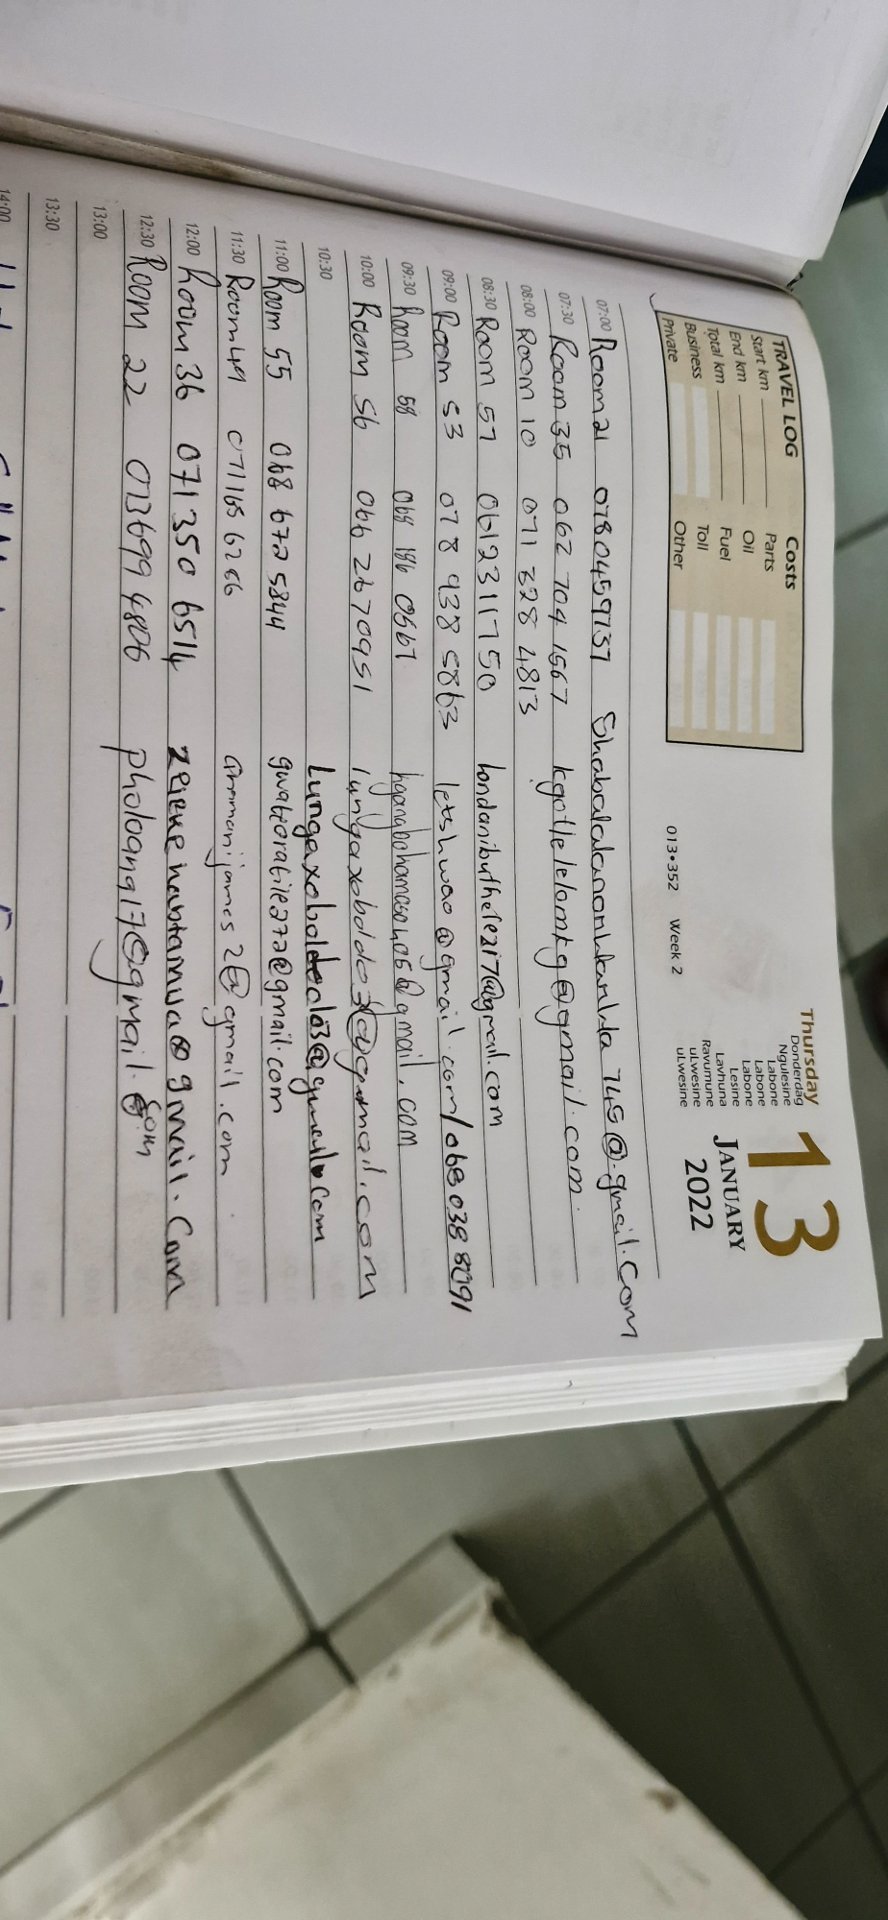 TRAVEL LOG Costs
Start km Parts
End km Oil
Total km Fuel
Business Toll
Private Other
013•352 Week 2
Thursday
Donderdag
Ngulesine
Labone
Labone
Labone
Lesine
Lavhuna
Ravumune
uLwesine
uLwesine
13
JANUARY
2022
07:00 Room 21 0780459737 745@gmail.com
07:30 Room 35 062 704 1567 kgotlelelomkg@gmail.com
08:00 Room 10 071 328 4813
08:30 Room 57 0612311750 londanibuthelezi7@gmail.com
09:00 Room 53 078 938 5863 letshwao@gmail.com/068 038 8091
09:30 Room 58 @gmail.com
10:00 Room 56 066 2670951 lungaxoboldo3@gmail.com
10:30
11:00 Room 55 068 672 5844 gwabeoratile272@gmail.com
11:30 Room 49 0711656266 @gmail.com
12:00 Room 36 071 350 6514 @gmail.com
12:30 Room 22 phologana17@gmail.com
13:00
13:30
14:00